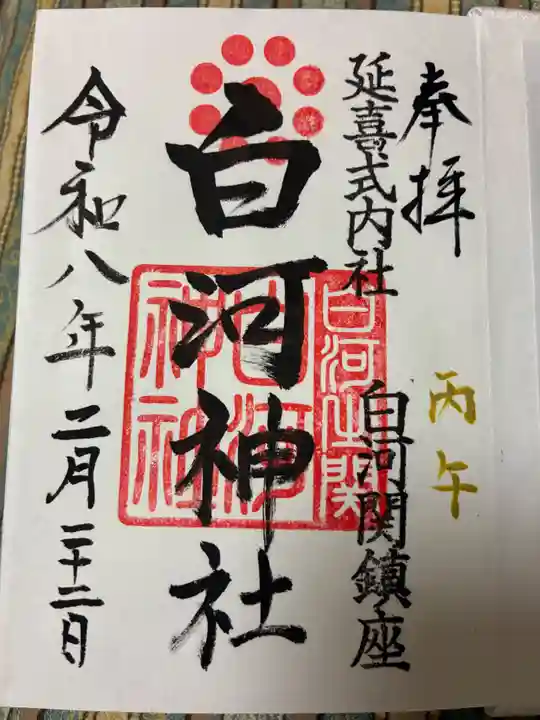 奉拝
丙午
延喜式内社
白河関鎮座
白河神社
白河之関
白河神社
令和八年二月二十二日